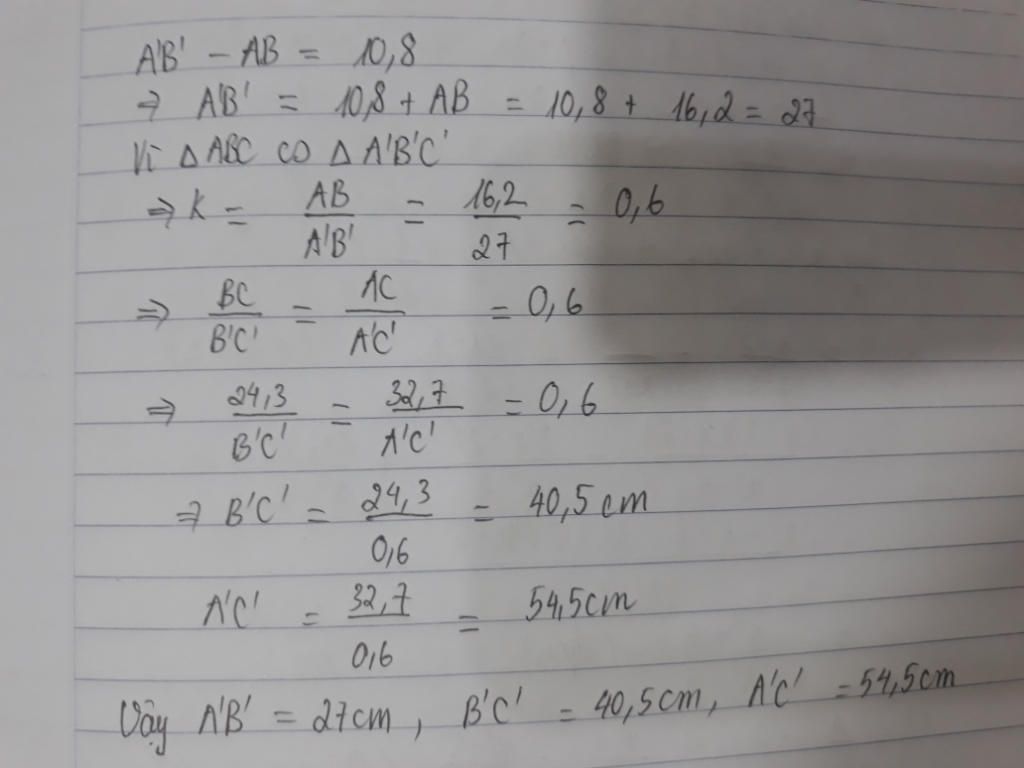 A'B' - AB = 10,8
⇒ A'B' = 10,8 + AB = 10,8 + 16,2 = 27
Vì Δ ABC ∽ Δ A'B'C'
⇒ K = AB/A'B' = 16,2/27 = 0,6
⇒ BC/B'C' = AC/A'C' = 0,6
⇒ 24,3/B'C' = 32,7/A'C' = 0,6
⇒ B'C' = 24,3/0,6 = 40,5 cm
A'C' = 32,7/0,6 = 54,5cm
Vậy A'B' = 27cm, B'C' = 40,5cm, A'C' = 54,5cm